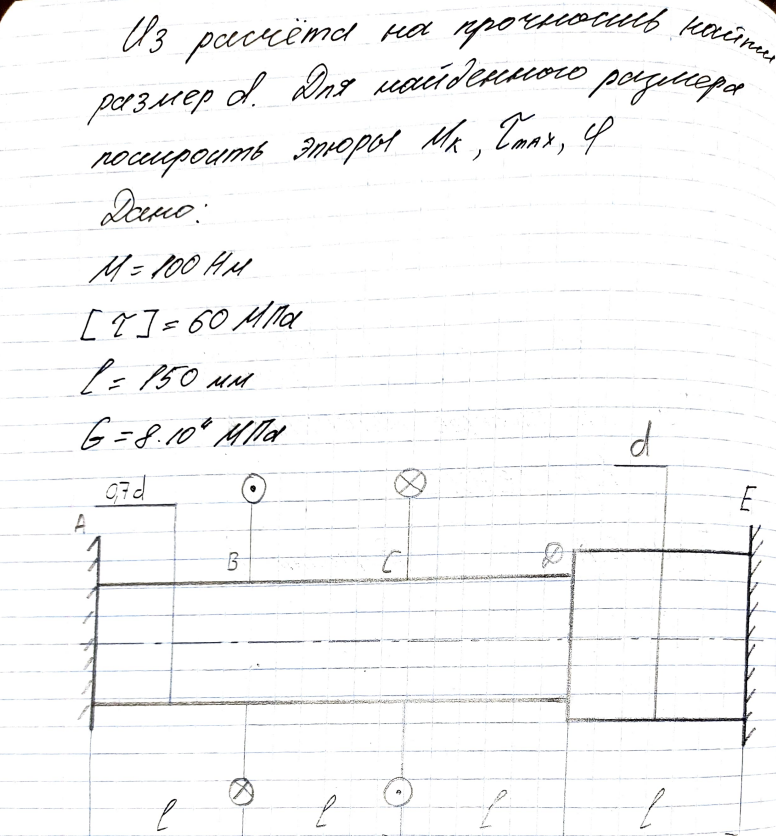 Из расчёта на прочность найти
размер d. Для найденного размера
построить эпюры Mк, τmax, φ
Дано:
M = 100 Нм
[τ] = 60 МПа
l = 150 мм
G = 8·10⁴ МПа
d
0,7d
E
A
B
C
D
l
l
l
l